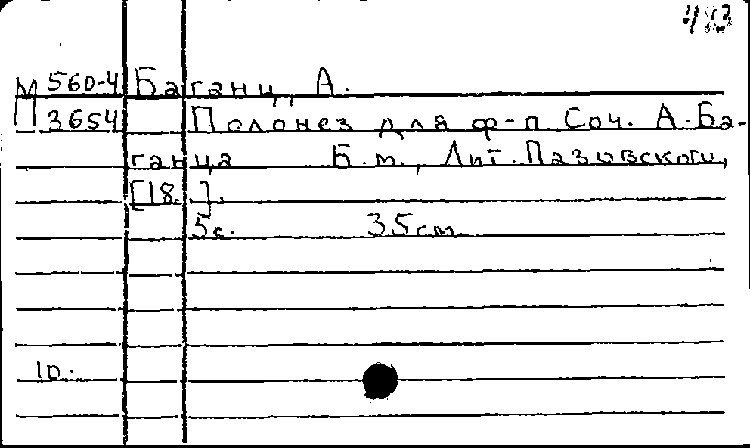 М 560-4 Баганц, А.
П 3654 Полонез для ф-п. Соч. А. Ба-
ганца Б.м., Лит. Пазовского,
[18. ].
5с. 35см.
10.